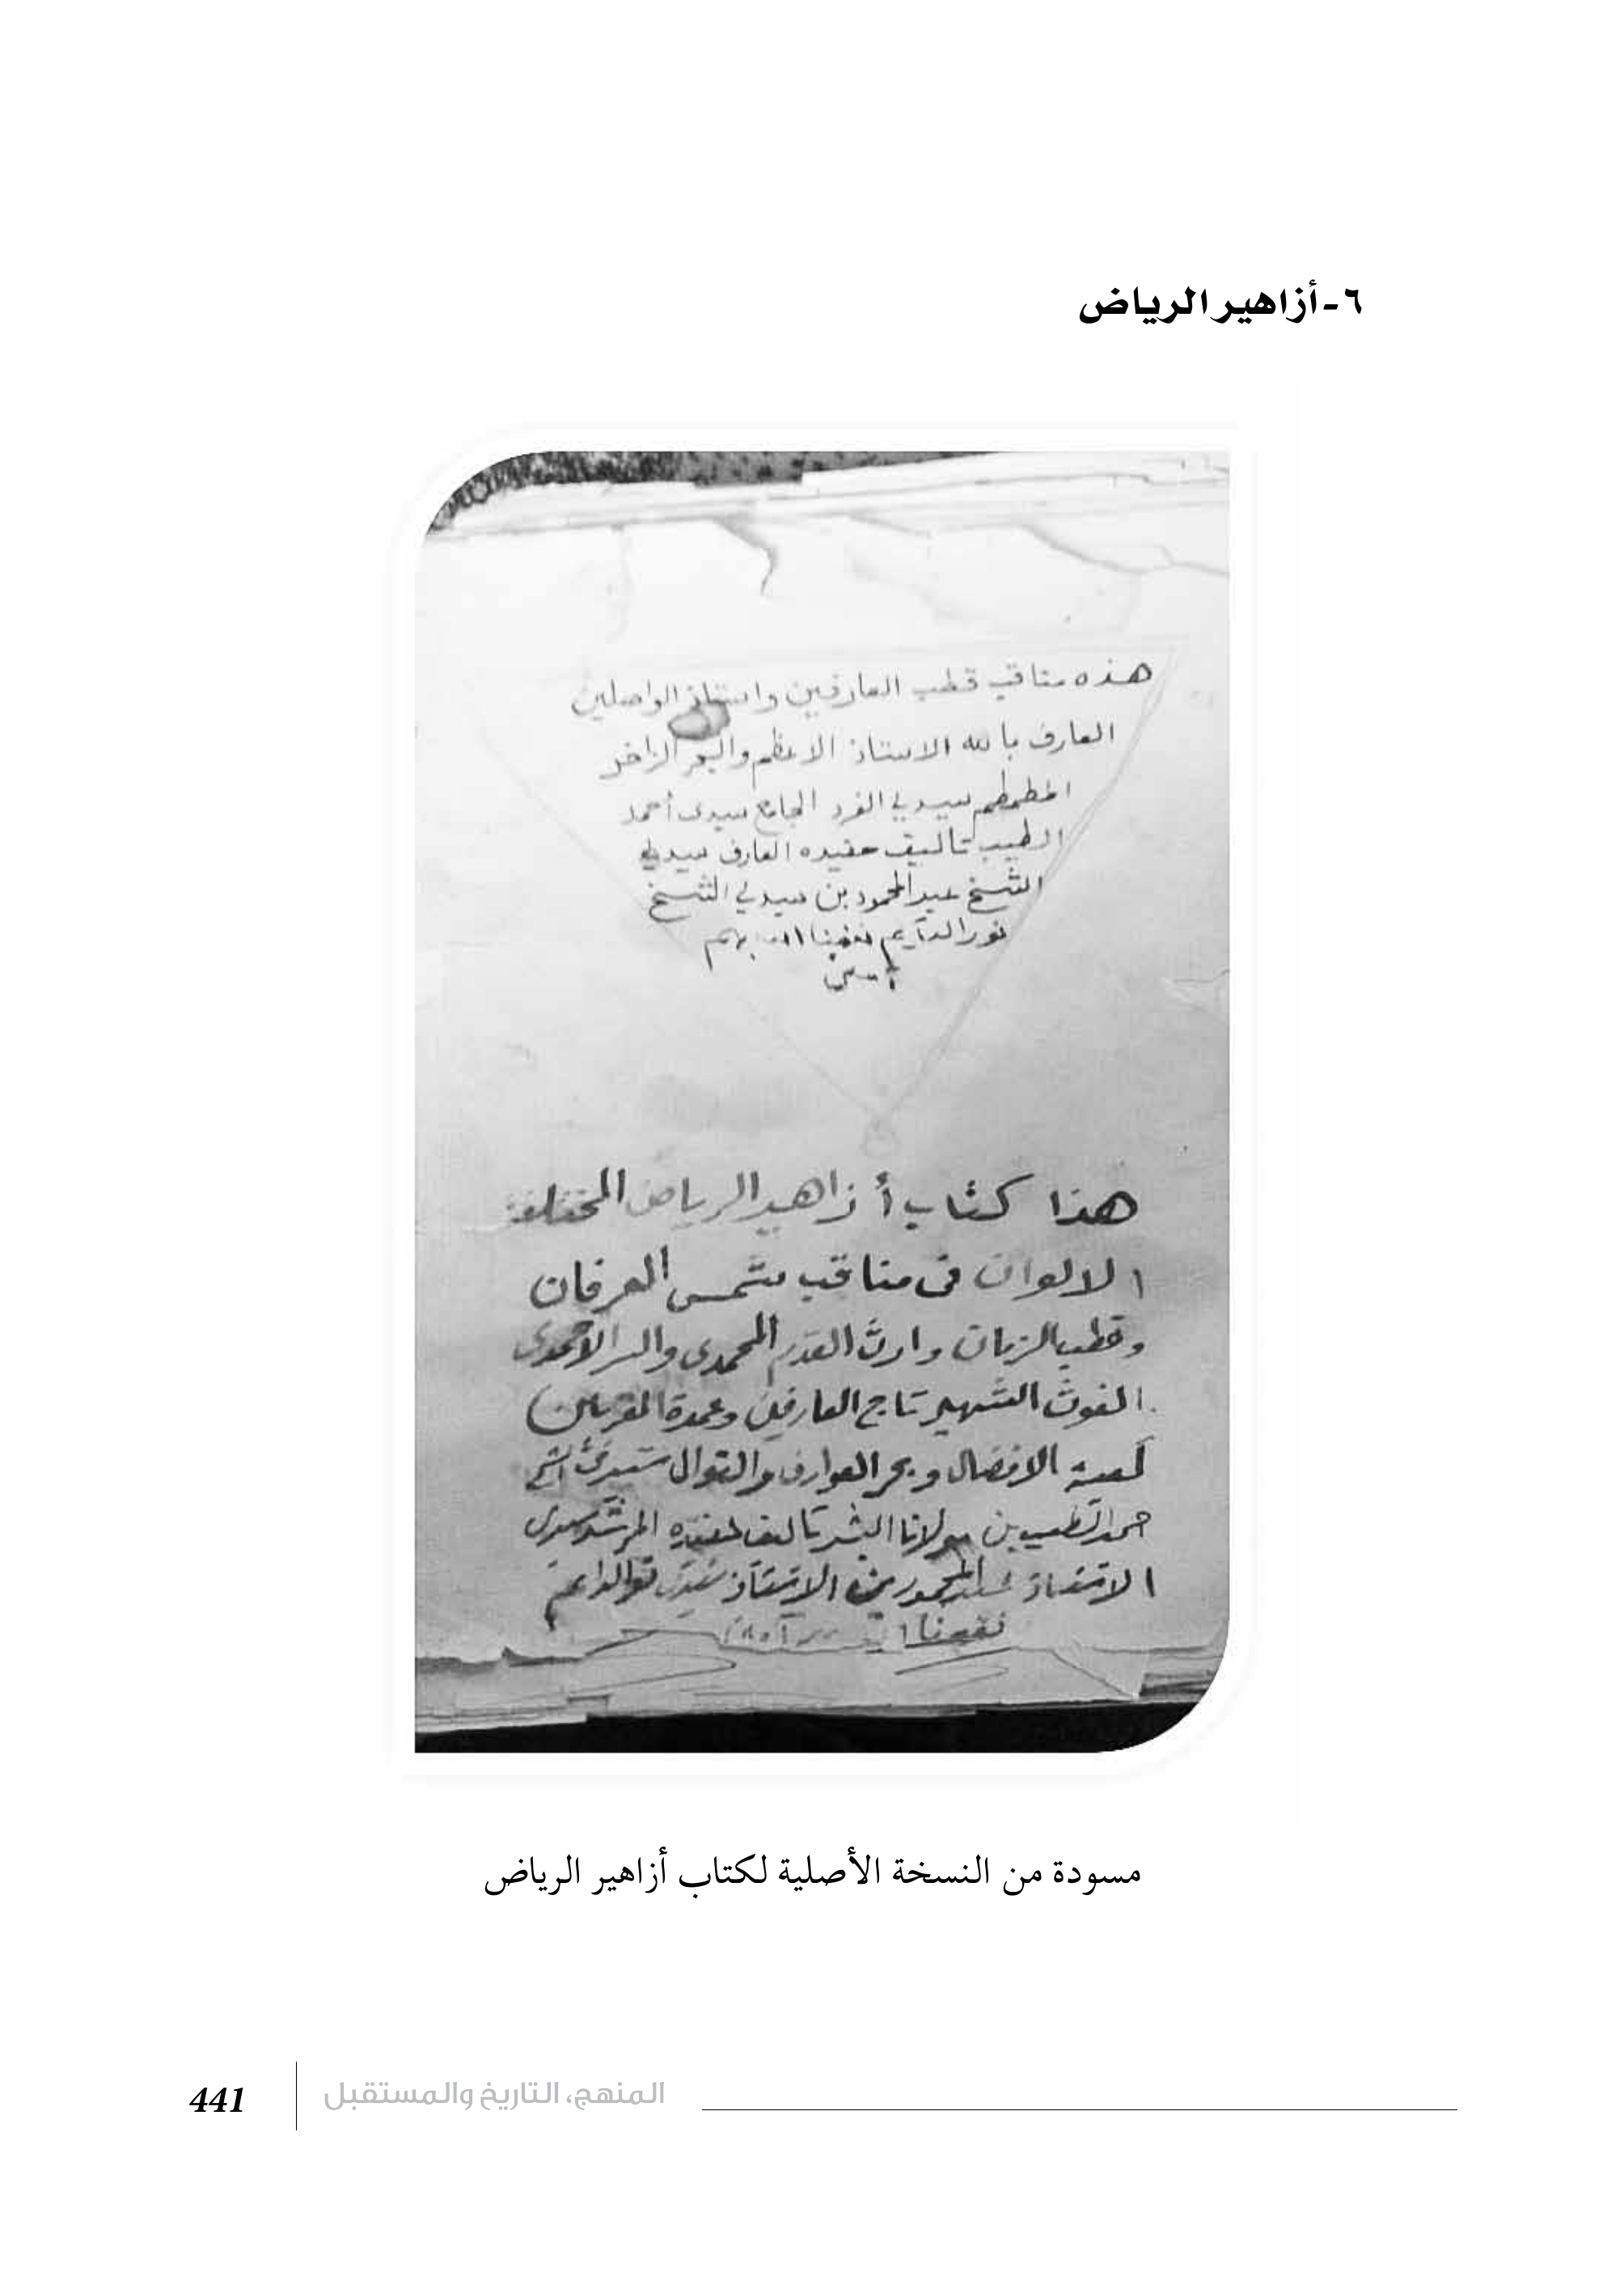 ٦- أزاهير الرياض
هذه مناقب قطب العارفين واستاذ الواصلين
العارف بالله الاستاذ الاعظم والبحر الزاخر
المطمطم سيدي الفرد الجامع سيدى أحمد
الطيب تاليف حفيده العارف سيدي
الشيخ عبدالمحمود بن سيدي الشيخ
نورالدآيم نفعنا الله بهم
آمين
هذا كتاب أزاهير الرياض المختلفة
الالوان فى مناقب شمس العرفان
وقطب الزمان وارث القدم المحمدى والسر الاحمدى
الغوث الشهير تاج العارفين وعمدة المقربين
كعبة الافضال وبحر العوارف والنوال سيدى
حمد الطيب بن مولانا البشير تاليف حفيده المرشد سيدى
الاستاذ عبدالمحمود بن الاستاذ سيدى نورالدايم
نفعنا
مسودة من النسخة الأصلية لكتاب أزاهير الرياض
المنهج، التاريخ والمستقبل
441